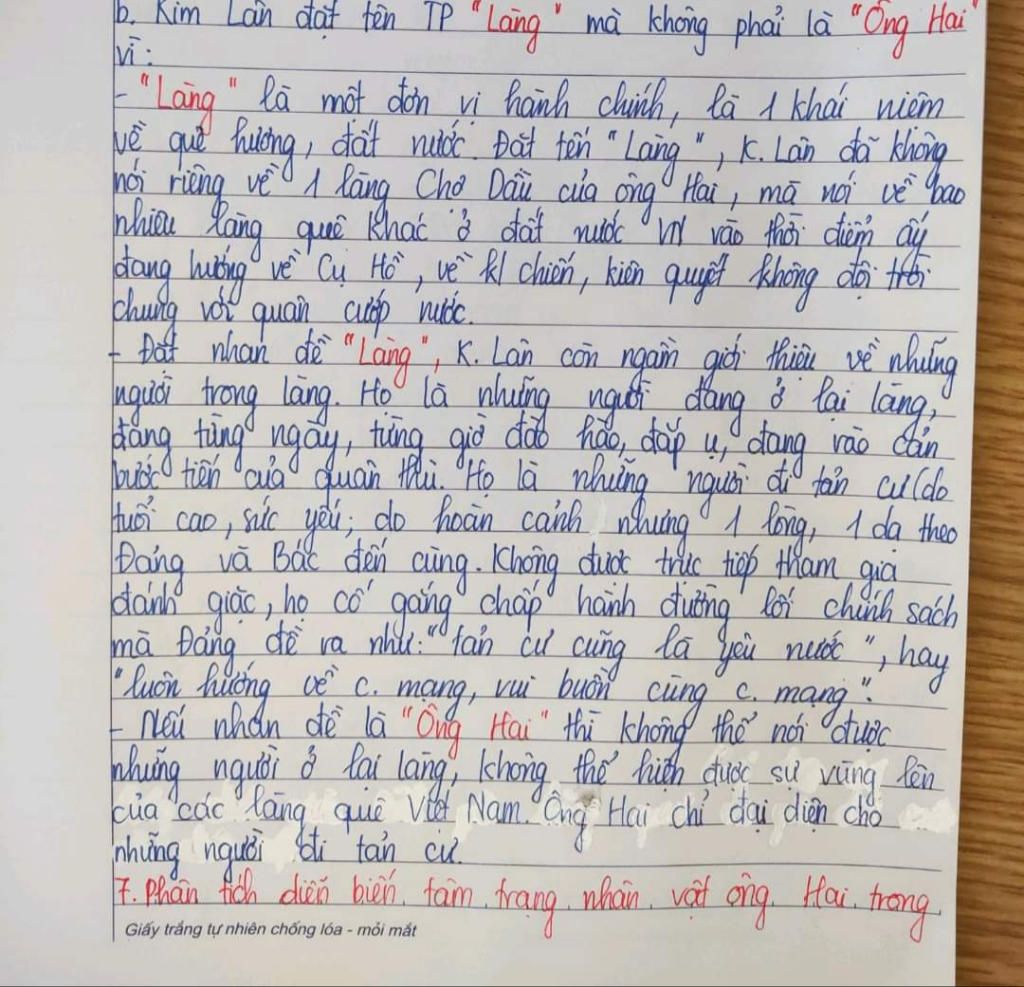 b. Kim Lân đặt tên TP "Làng" mà không phải là "Ông Hai"
vì:
- "Làng" là một đơn vị hành chính, là 1 khái niệm
về quê hương, đất nước. Đặt tên "Làng", K. Lân đã không
nói riêng về 1 làng Chợ Dầu của ông Hai, mà nói về bao
nhiêu làng quê khác ở đất nước VN vào thời điểm ấy
đang hướng về Cụ Hồ, về k/ chiến, kiên quyết không đội trời
chung với quân cướp nước.
- Đặt nhan đề "Làng", K. Lân còn ngầm giới thiệu về những
người trong làng. Họ là những người đang ở lại làng,
đang từng ngày, từng giờ đào hào, đắp ụ, đang vào cản
bước tiến của quân thù. Họ là những người đi tản cư (do
tuổi cao, sức yếu; do hoàn cảnh nhưng 1 lòng, 1 dạ theo
Đảng và Bác đến cùng. Không được trực tiếp tham gia
đánh giặc, họ cố gắng chấp hành đường lối chính sách
mà Đảng đề ra như: "tản cư cũng là yêu nước", hay
"luôn hướng về c. mạng, vui buồn cùng c. mạng".
- Nếu nhan đề là "Ông Hai" thì không thể nói được
những người ở lại làng, không thể hiện được sự vùng lên
của các làng quê Việt Nam. Ông Hai chỉ đại diện cho
những người đi tản cư.
7. Phân tích diễn biến tâm trạng nhân vật ông Hai trong
Giấy trắng tự nhiên chống lóa - mỏi mắt